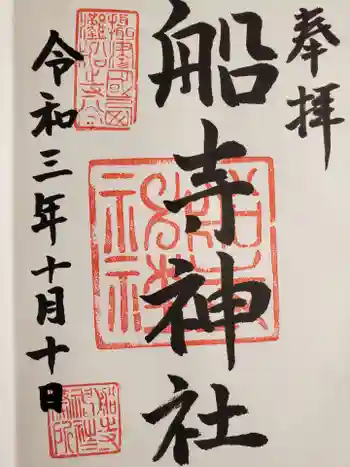 奉拝
船寺神社
令和三年十月十日